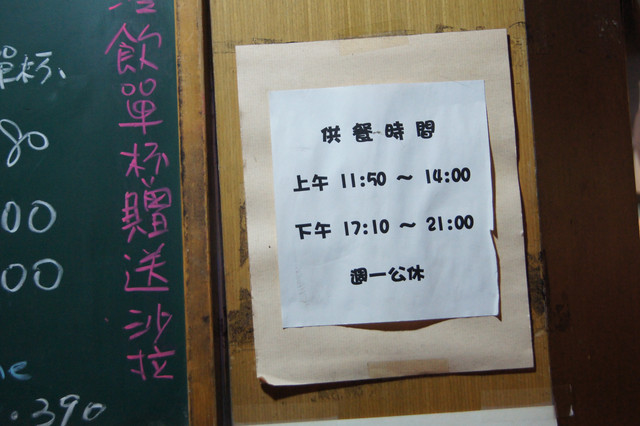 飲單杯贈送沙拉
單杯
80
00
00
.390
供餐時間
上午 11:50 ~ 14:00
下午 17:10 ~ 21:00
週一公休